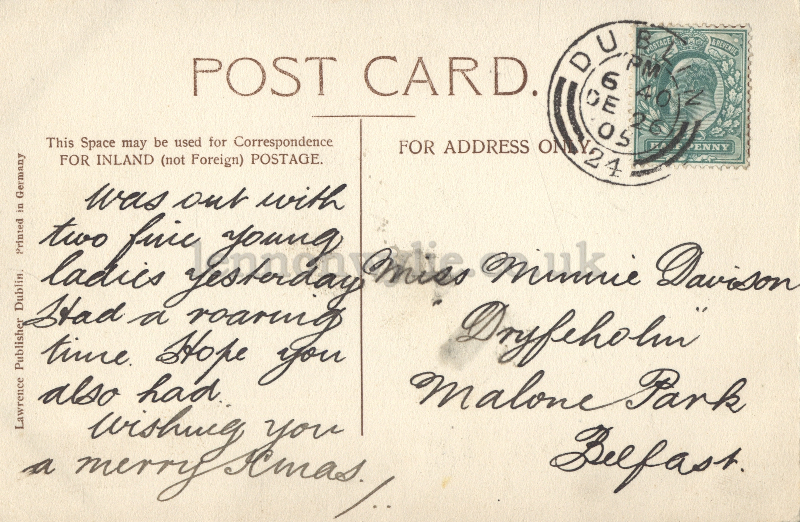 POST CARD.
This Space may be used for Correspondence
FOR INLAND (not Foreign) POSTAGE.
FOR ADDRESS ONLY
DUBLIN
PM
6 40
DE 26
05
24
POSTAGE & REVENUE
HALFPENNY
Lawrence Publisher Dublin. Printed in Germany
Was out with
two fine young
ladies yesterday
Had a roaring
time. Hope you
also had.
Wishing you
a merry Xmas.
Miss Minnie Davison
"Dryfeholm"
Malone Park
Belfast.
lennonwylie.co.uk